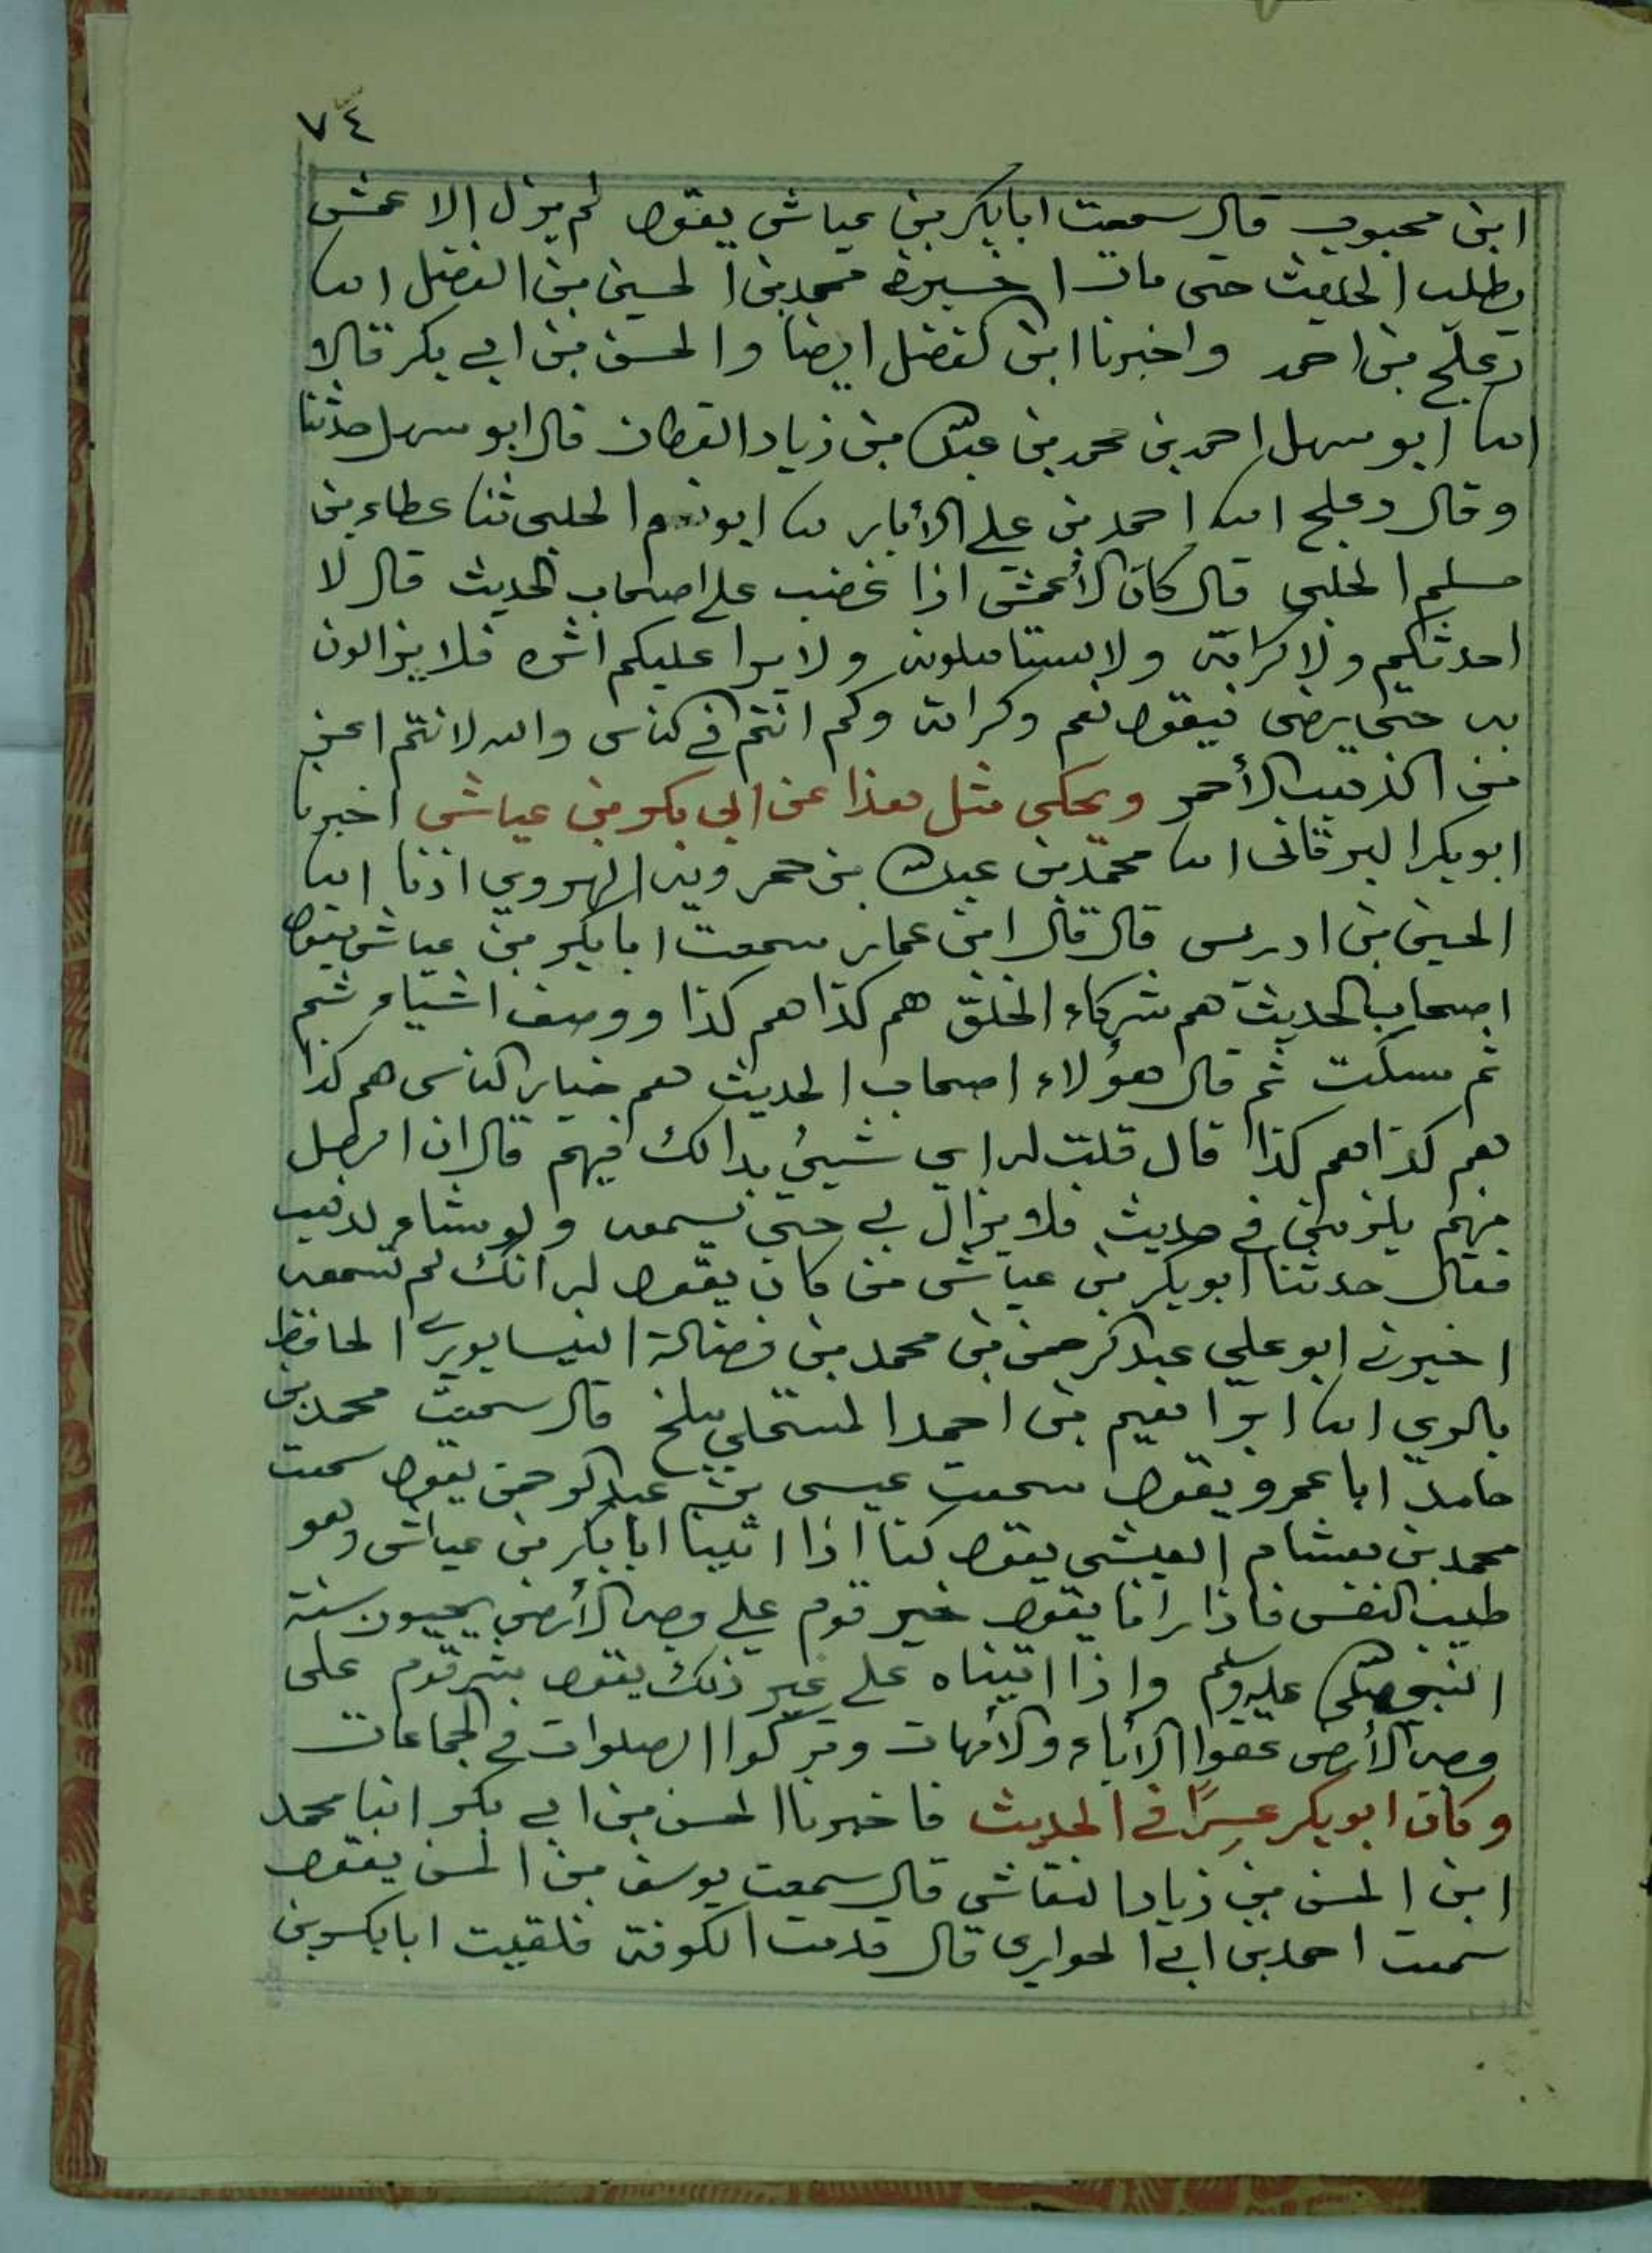 ٧٤
ابن محبوب قال سمعت ابا بكر بن عياش يقول لم يزل الاعمش
يطلب الحديث حتى مات اخبرنا محمد بن الحسين بن الفضل انا
دعلج بن احمد واخبرنا ابن الفضل ايضا والحسن بن ابي بكر قالا
انا ابو سهل احمد بن محمد بن عبدالله بن زياد القطان قال ابو سهل حدثنا
وقال دعلج انا احمد بن علي الأبار نا ابو الحلبي ثنا عطاء بن
مسلم الحلبي قال كان الأعمش اذا غضب على اصحاب الحديث قال لا
احدثكم ولا كرامة ولا تستاهلونه ولا يرا عليكم اثره فلا يزالون
به حتى يرضى فيقول نعم وكرامة وكم انتم في الناس والله لانتم اعز
من الذهب الأحمر ويحكى مثل هذا عن ابي بكر بن عياش اخبرنا
ابو بكر البرقاني انا محمد بن عبدالله بن حمرويه الهروي اذنا انا
الحسين بن ادريس قال قال ابن عمار سمعت ابا بكر بن عياش يقول
اصحاب الحديث هم شركاء الخلق هم كذا هم كذا ووصف اشياء ثم
ثم سكت ثم قال هؤلاء اصحاب الحديث هم خيار الناس هم كذا
هم كذا هم كذا قال قلت له اي شيئ بدا لك فيهم قال ان الرجل
منهم يلزمني في حديث فلا يزال بي حتى يسمعه ولو شاء لذهب
فقال حدثنا ابو بكر بن عياش من كان يقول له انك لم تسمعه
اخبرني ابو علي عبد الرحمن بن محمد بن فضالة النيسابوري الحافظ
بالري انا ابراهيم بن احمد المستملي ببلخ قال سمعت محمد بن
حامد ابا عمرو يقول سمعت عيسى بن عبد الرحمن يقول سمعت
محمد بن هشام العيشي يقول كنا اذا اتينا ابا بكر بن عياش وهو
طيب النفس فاذا رانا يقول خير قوم على وجه الأرض يحيون سنة
النبي صلى الله عليه وسلم واذا اتيناه على غير ذلك يقول بشر قوم على
وجه الأرض عقوا الأباء والأمهات وتركوا الصلوات في الجماعات
وكان ابو بكر عسرًا في الحديث فاخبرنا الحسن بن ابي بكر انبا محمد
ابن الحسن بن زياد النقاش قال سمعت يوسف بن الحسن يقول
سمعت احمد بن ابي الحواري قال قدمت الكوفة فلقيت ابا بكر بن